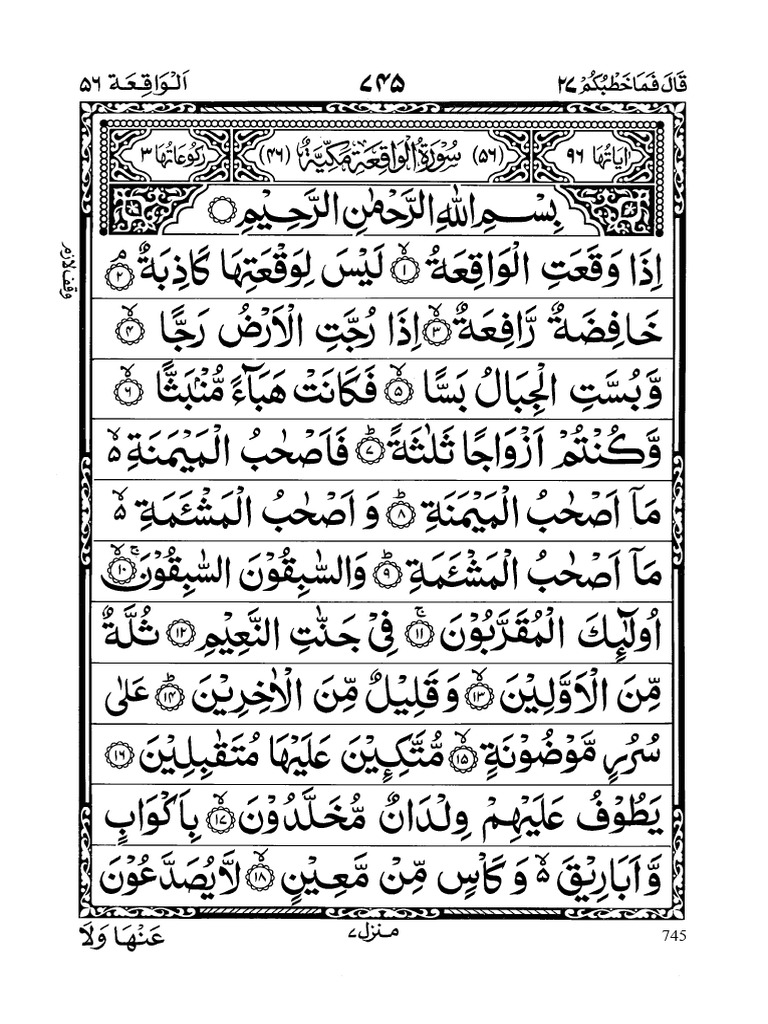 قَالَ فَمَا خَطْبُكُمْ ٢٧ ٧٤٥ اَلْوَاقِعَة ٥٦
اٰيَاتُهَا ٩٦ (٥٦) سُوْرَةُ الْوَاقِعَةِ مَكِّيَّةٌ (٤٦) رُكُوْعَاتُهَا ٣
بِسْمِ اللهِ الرَّحْمٰنِ الرَّحِيْمِ
اِذَا وَقَعَتِ الْوَاقِعَةُ ۙ﴿١﴾ لَيْسَ لِوَقْعَتِهَا كَاذِبَةٌ ۘ﴿٢﴾
وقف لازم
خَافِضَةٌ رَّافِعَةٌ ۙ﴿٣﴾ اِذَا رُجَّتِ الْاَرْضُ رَجًّا ۙ﴿٤﴾
وَّبُسَّتِ الْجِبَالُ بَسًّا ۙ﴿٥﴾ فَكَانَتْ هَبَآءً مُّنْۢبَثًّا ۙ﴿٦﴾
وَّكُنْتُمْ اَزْوَاجًا ثَلٰثَةً ؕ﴿٧﴾ فَاَصْحٰبُ الْمَيْمَنَةِ ۙ۬
مَاۤ اَصْحٰبُ الْمَيْمَنَةِ ؕ﴿٨﴾ وَ اَصْحٰبُ الْمَشْـَٔمَةِ ۙ۬
مَاۤ اَصْحٰبُ الْمَشْـَٔمَةِ ؕ﴿٩﴾ وَالسّٰبِقُوْنَ السّٰبِقُوْنَ ۚۙ﴿١٠﴾
اُولٰٓئِكَ الْمُقَرَّبُوْنَ ۚ﴿١١﴾ فِيْ جَنّٰتِ النَّعِيْمِ ﴿١٢﴾ ثُلَّةٌ
مِّنَ الْاَوَّلِيْنَ ۙ﴿١٣﴾ وَقَلِيْلٌ مِّنَ الْاٰخِرِيْنَ ؕ﴿١٤﴾ عَلٰى
سُرُرٍ مَّوْضُوْنَةٍ ۙ﴿١٥﴾ مُّتَّكِـِٕيْنَ عَلَيْهَا مُتَقٰبِلِيْنَ ﴿١٦﴾
يَطُوْفُ عَلَيْهِمْ وِلْدَانٌ مُّخَلَّدُوْنَ ۙ﴿١٧﴾ بِاَكْوَابٍ
وَّاَبَارِيْقَ ۙ۬ وَكَاْسٍ مِّنْ مَّعِيْنٍ ۙ﴿١٨﴾ لَّا يُصَدَّعُوْنَ
745 منزل ٧ عَنْهَا وَلَا